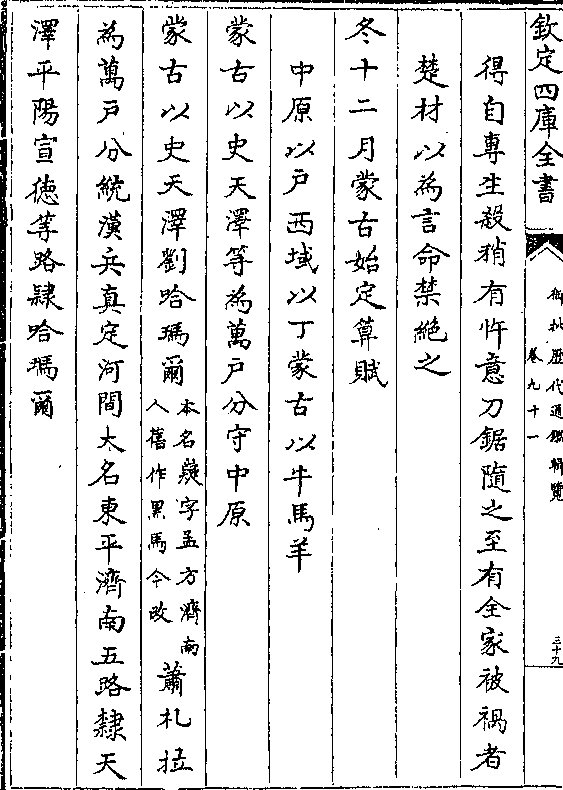 欽定四庫全書
御批歷代通鑑輯覽
卷九十一
三十九
得自專生殺稍有忤意刀鋸隨之至有全家被禍者
楚材以為言命禁絕之
冬十二月蒙古始定算賦
中原以戶西域以丁蒙古以牛馬羊
蒙古以史天澤等為萬戶分守中原
蒙古以史天澤劉哈瑪爾
本名嶷字孟方濟南
人舊作黑馬今改
蕭札拉
為萬戶分統漢兵真定河間大名東平濟南五路隸天
澤平陽宣德等路隸哈瑪爾